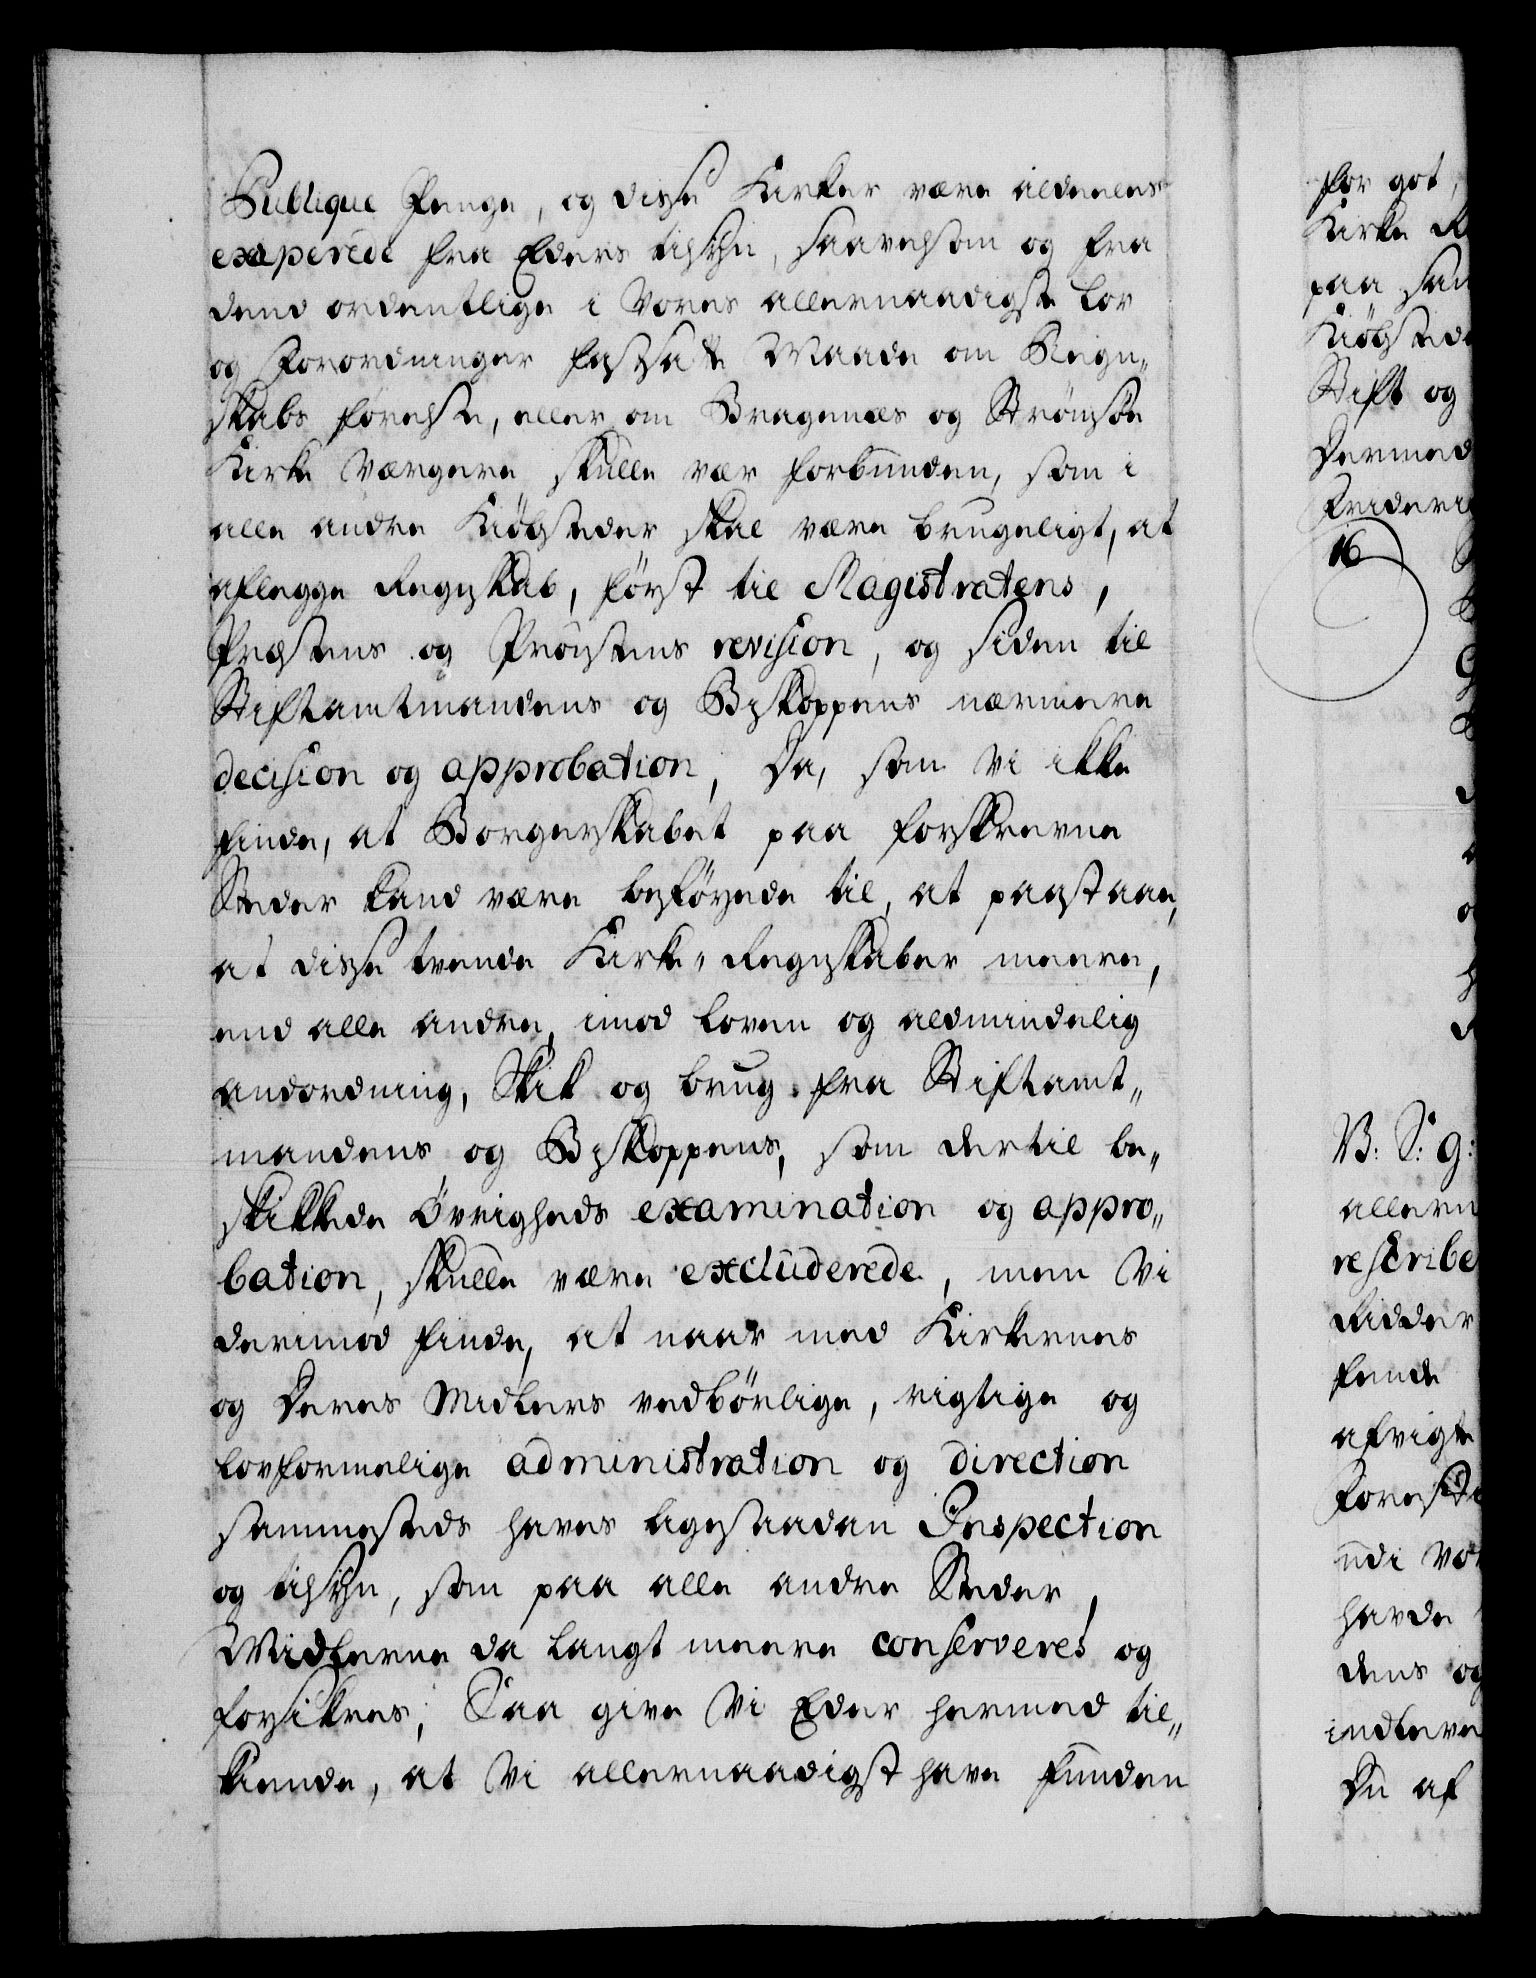 Publique Penge, og disse Kirker være aldeeles
eximerede fra Eders tilsyn, saavelsom og fra
dend ordentlige i Vores allernaadigste Lov
og Forordninger fastsatte Maade om Regn-
skabs førelse, eller om Bragenæs og Strømsøe
Kirke Værgere skulle vær forbunden, som i
alle andre Kiøbsteder skal være brugeligt, at
aflegge Regnskab, først til Magistratens,
Præstens og Provstens revision, og siden til
Stiftamtmandens og Biskoppens nærmere
decision og approbation, Da, som Vi ikke
finde, at Borgerskabet paa forskrevne
Steder kand være beføyede til, at paastaae,
at disse tvende Kirke-Regnskaber meere,
end alle andre, imod Loven og aldmindelig
andordning, Skik og brug fra Stiftamt-
mandens og Biskoppens, som dertil be-
skikkede Øvrigheds examination og appro-
bation, skulle være excluderede, men Vi
derimod finde, at naar med Kirkernes
og Deres Midlers vedbørlige, rigtige og
lovformelige administration og direction
sammesteds haves ligesaadan Inspection
og tilsyn, som paa alle andre Steder,
Midlerne da langt meere conserveres og
forsikres; Saa give Vi Eder hermed til-
kiende, at Vi allernaadigst have funden
for got,
Kirke
paa
Stift og
16
V: S: g:
rescribe
Ridder
afvigte
udi
havde
dens og
Du af